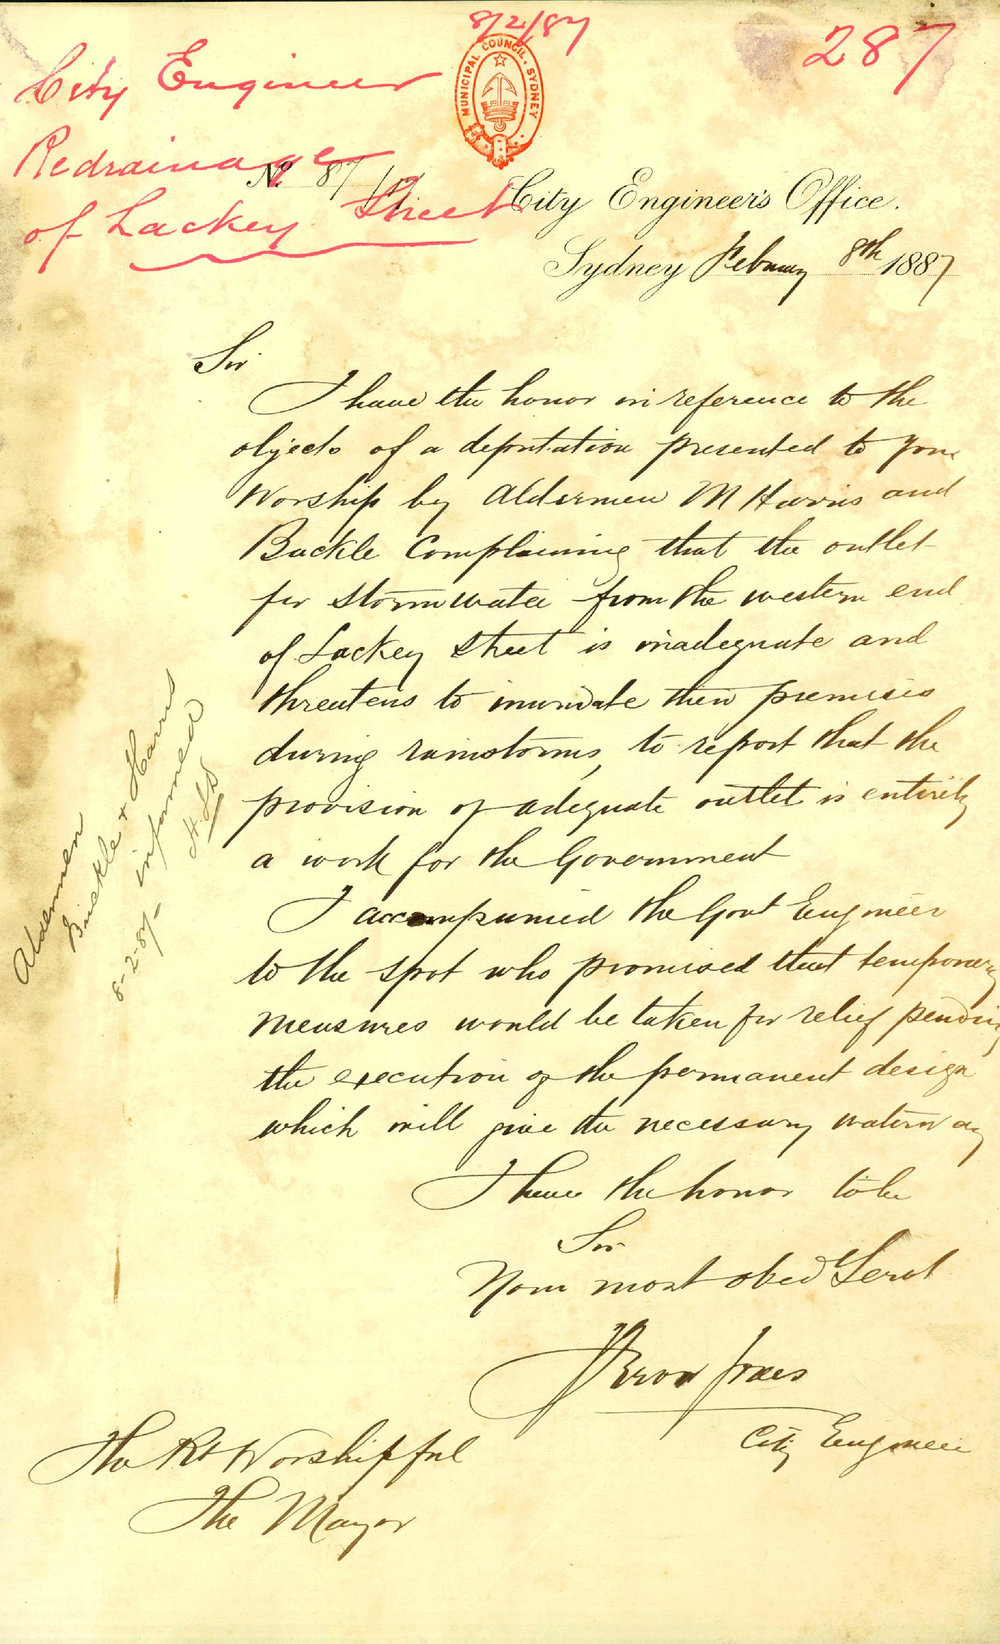 8/2/87
287
City Engineer
Redrainage
of Lackey Street
MUNICIPAL COUNCIL. SYDNEY
No. 87/
City Engineer's Office.
Sydney February 8th 1887
Sir
I have the honor in reference to the
objects of a deputation presented to your
Worship by Aldermen M Harris and
Buckle Complaining that the outlet
for stormwater from the western end
of Lackey Street is inadequate and
threatens to inundate their premises
during rainstorms, to report that the
provision of adequate outlet is entirely
a work for the Government
I accompanied the Govt Engineer
to the spot who promised that temporary
measures would be taken for relief pending
the execution of the permanent design
which will give the necessary waterway
I have the honor to be
Sir
Your most obed Servt
City Engineer
The Rt Worshipful
The Mayor
Aldermen
Buckle & Harris
informed
8-2-87